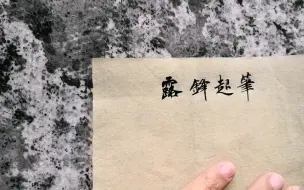 露鋒起筆